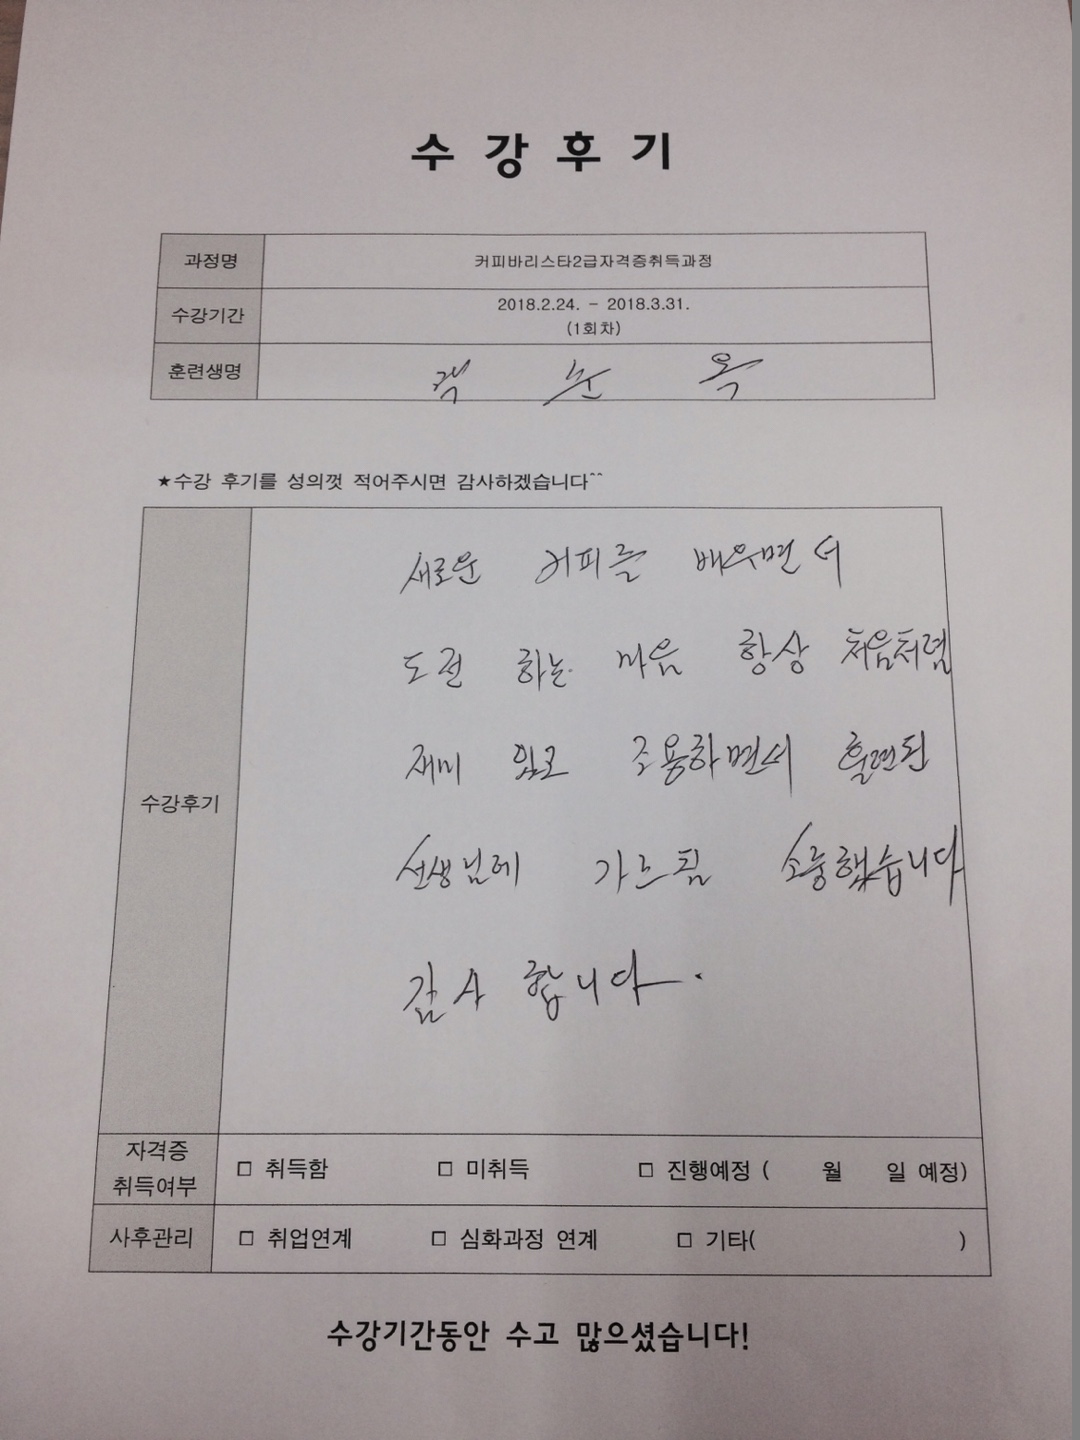 수 강 후 기
과정명 커피바리스타2급자격증취득과정
수강기간 2018.2.24. - 2018.3.31.
(1회차)
훈련생명
★수강 후기를 성의껏 적어주시면 감사하겠습니다^^
새로운 커피를 배우면서
도전 하는 마음 항상 처음처럼
재미 있고 조용하면서 훌련된
수강후기
선생님에 가르침 소중했습니다
감사 합니다.
자격증
취득여부 □ 취득함 □ 미취득 □ 진행예정 ( 월 일 예정)
사후관리 □ 취업연계 □ 심화과정 연계 □ 기타( )
수강기간동안 수고 많으셨습니다!